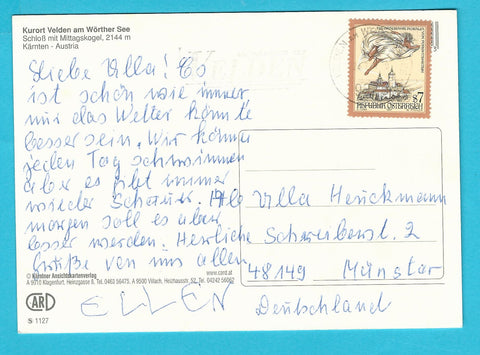 Kurort Velden am Wörther See
Schloß mit Mittagskogel, 2144 m
Kärnten - Austria
VELDEN
REPUBLIK ÖSTERREICH
S7
Liebe Ulla! Es
ist schön wie immer
nur das Wetter könnte
besser sein. Wir können
jeden Tag schwimmen
aber es gibt immer
wieder Schauer. Ab
morgen soll es aber
besser werden. Herzliche
Grüße von uns allen
ELLEN
Ulla Heuckmann
Schreiberstr. 2
48149 Münster
Deutschland
© Kärntner Ansichtkartenverlag
www.card.at
A 9010 Klagenfurt, Heinzgasse 8, Tel. 0463 56475, A 9500 Villach, Heizhausstr. 52, Tel. 04242 56062
CARD
S 1127